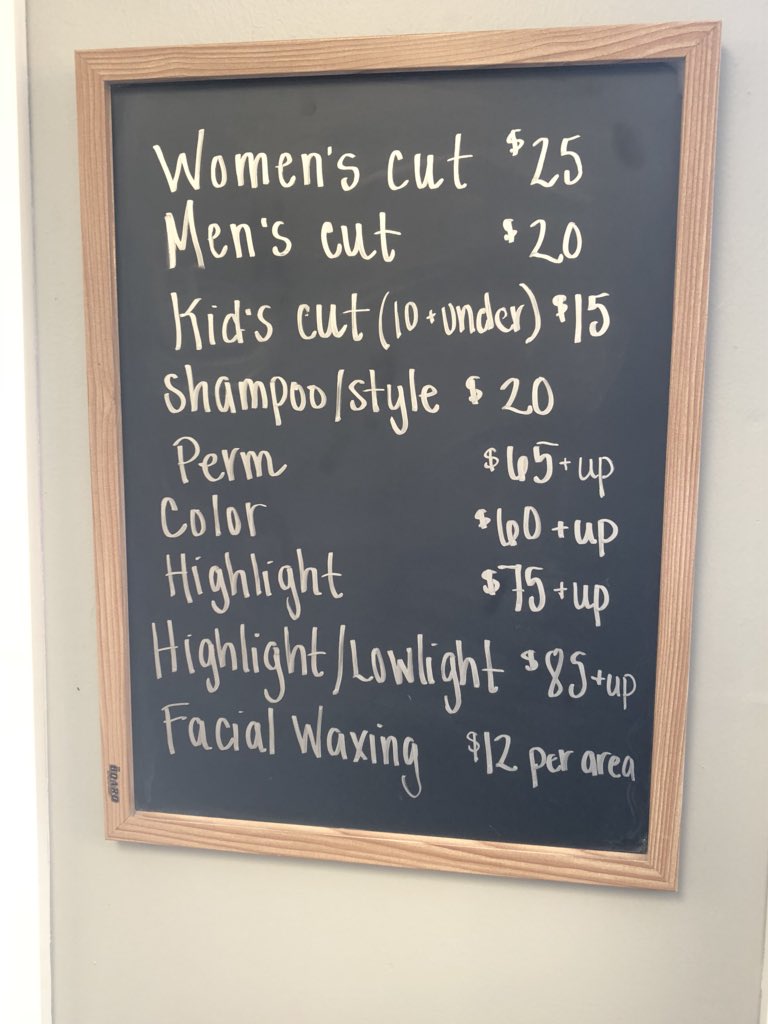 Women's cut $25
Men's cut $20
Kid's cut (10 + under) $15
Shampoo/style $20
Perm $65 + up
Color $60 + up
Highlight $75 + up
Highlight/Lowlight $85 + up
Facial Waxing $12 per area
BOARD